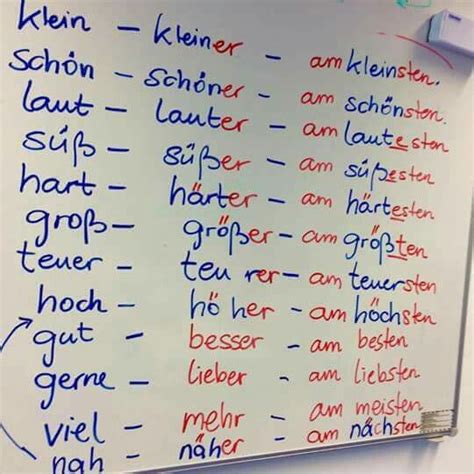 klein - kleiner - am kleinsten.
schön - schöner - am schönsten.
laut - lauter - am lautesten
süß - süßer - am süßesten
hart - härter - am härtesten
groß - größer - am größten
teuer - teu rer - am teuersten
hoch - höher - am höchsten
gut - besser - am besten
gerne - lieber - am liebsten
viel - mehr - am meisten
nah - näher - am nächsten